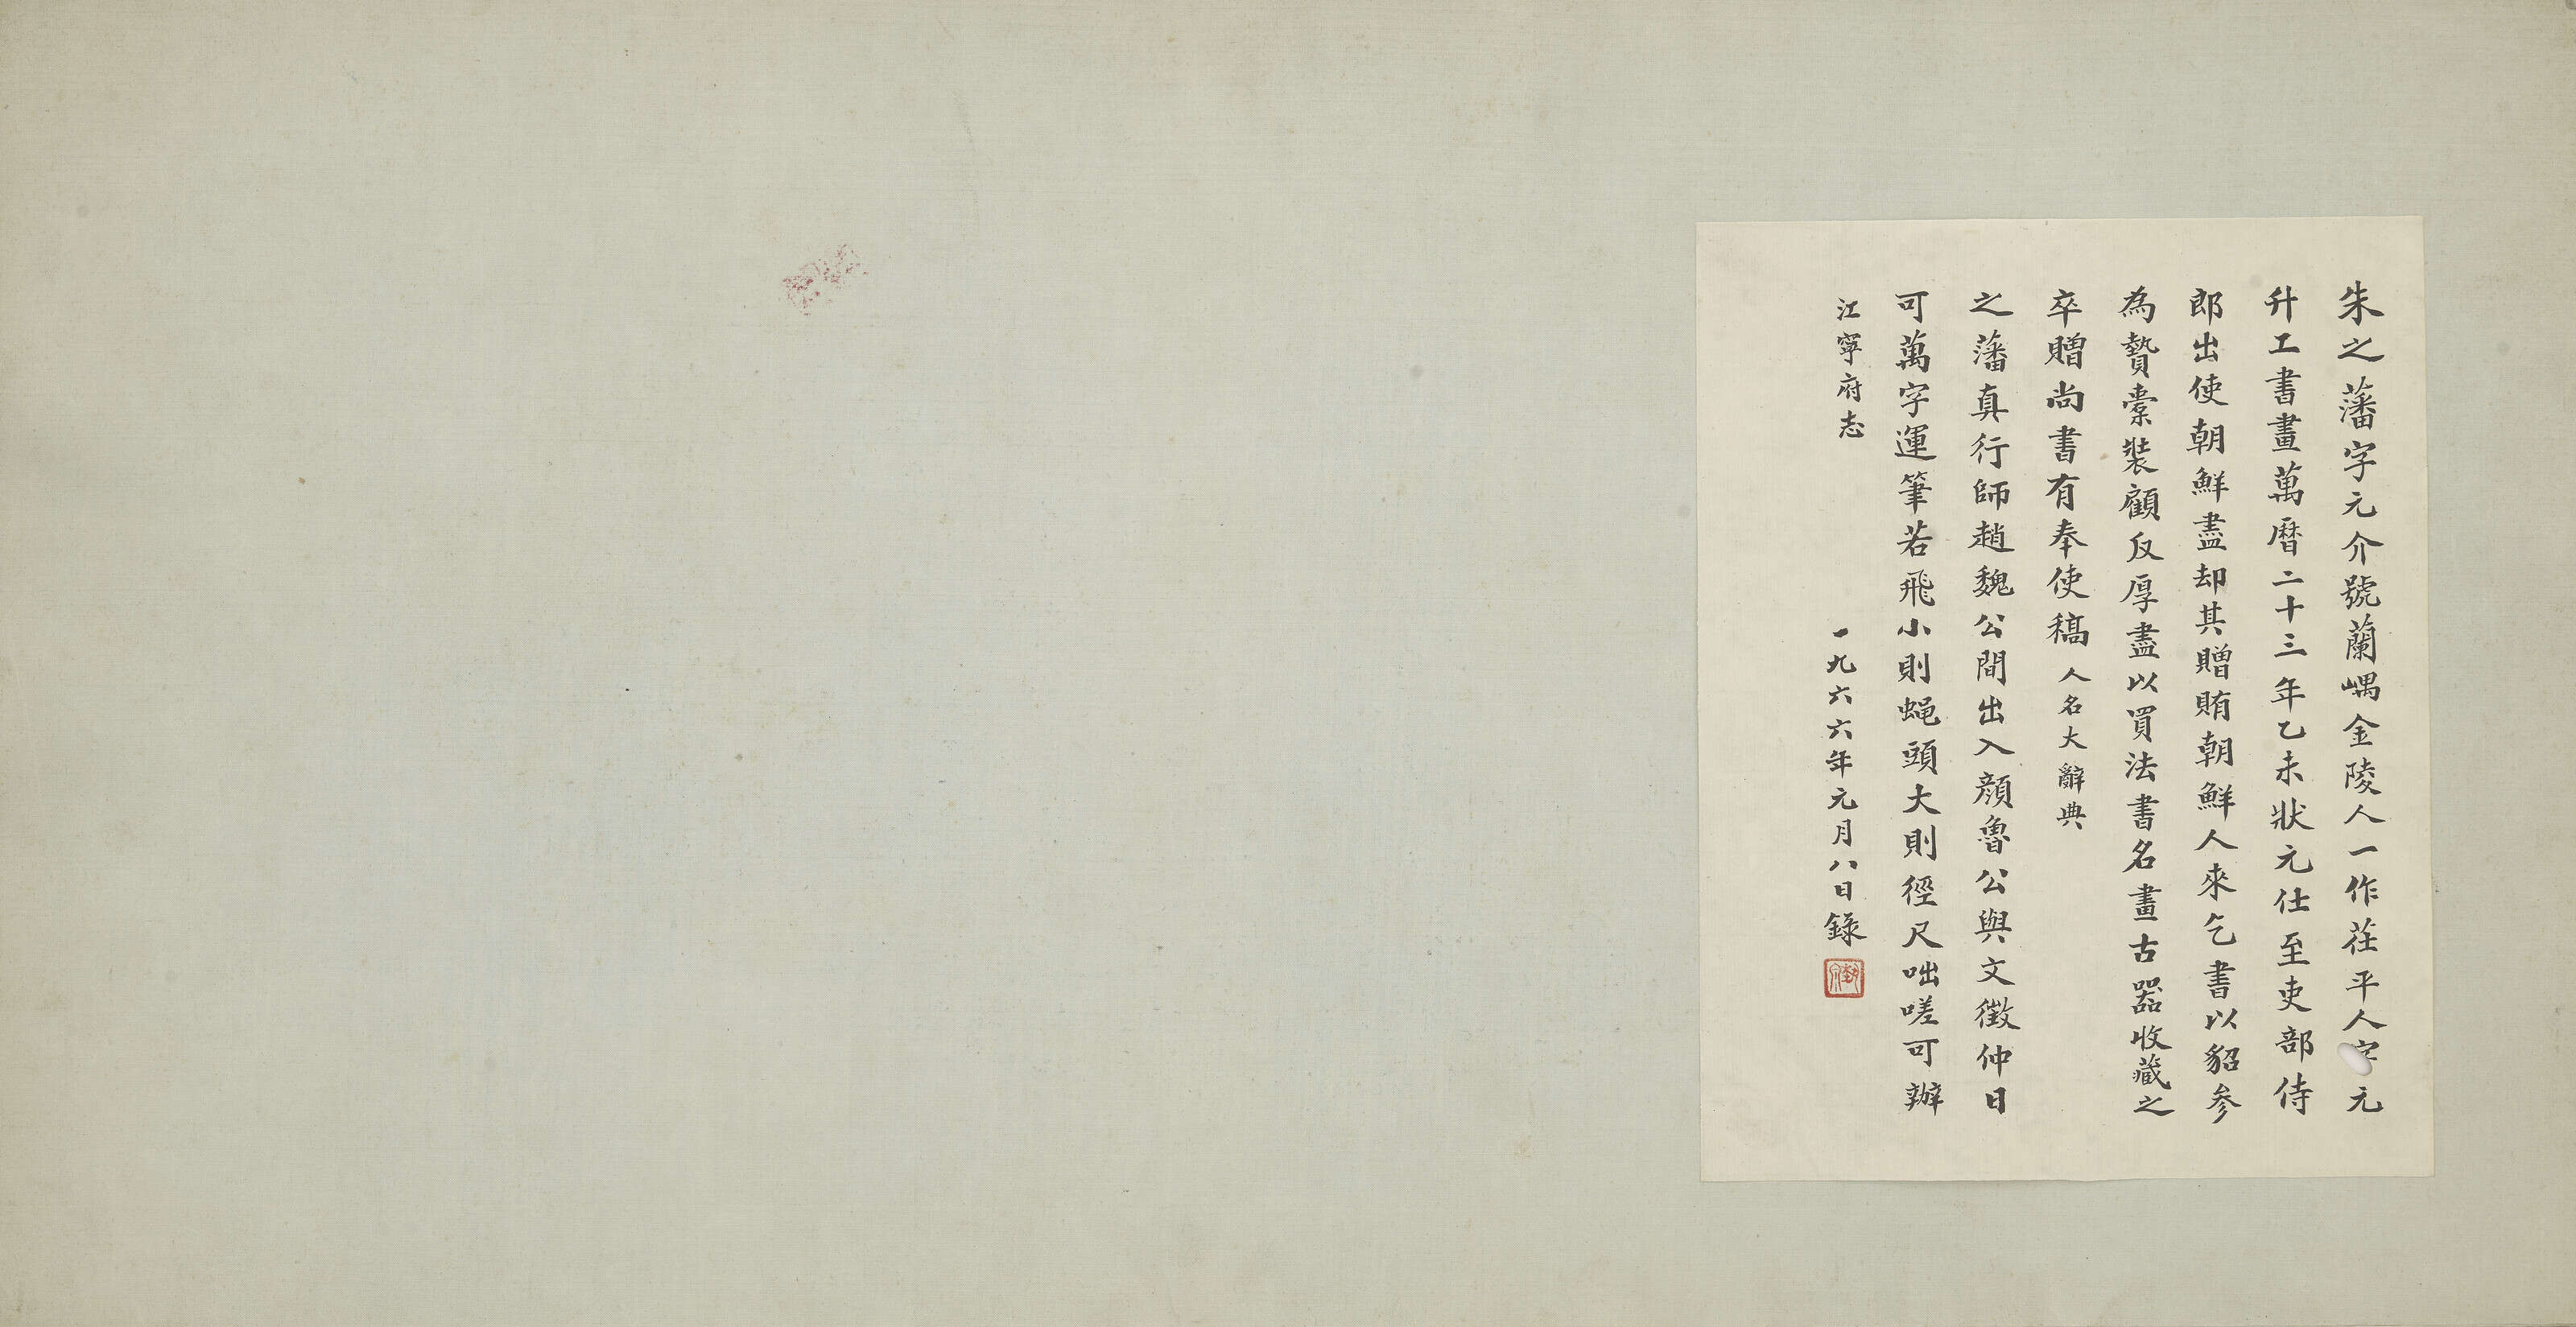 朱之蕃字元介號蘭嵎金陵人一作茌平人字元
升工書畫萬曆二十三年乙未狀元仕至吏部侍
郎出使朝鮮盡却其贈賄朝鮮人來乞書以貂參
為贄橐裝顧反厚盡以買法書名畫古器收藏之
卒贈尚書有奉使稿 人名大辭典
之藩真行師趙魏公間出入顏魯公與文徵仲日
可萬字運筆若飛小則蝇頭大則徑尺咄嗟可辦
江寧府志 一九六六年元月八日錄